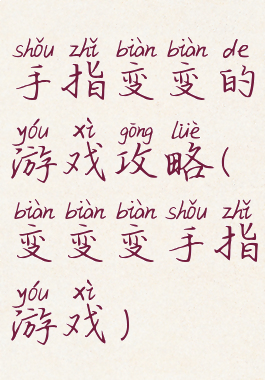 shǒu zhǐ biàn biàn de
手指变变的
yóu xì gōng lüè
游戏攻略(
biàn biàn biàn shǒu zhǐ
变变变手指
yóu xì
游戏)